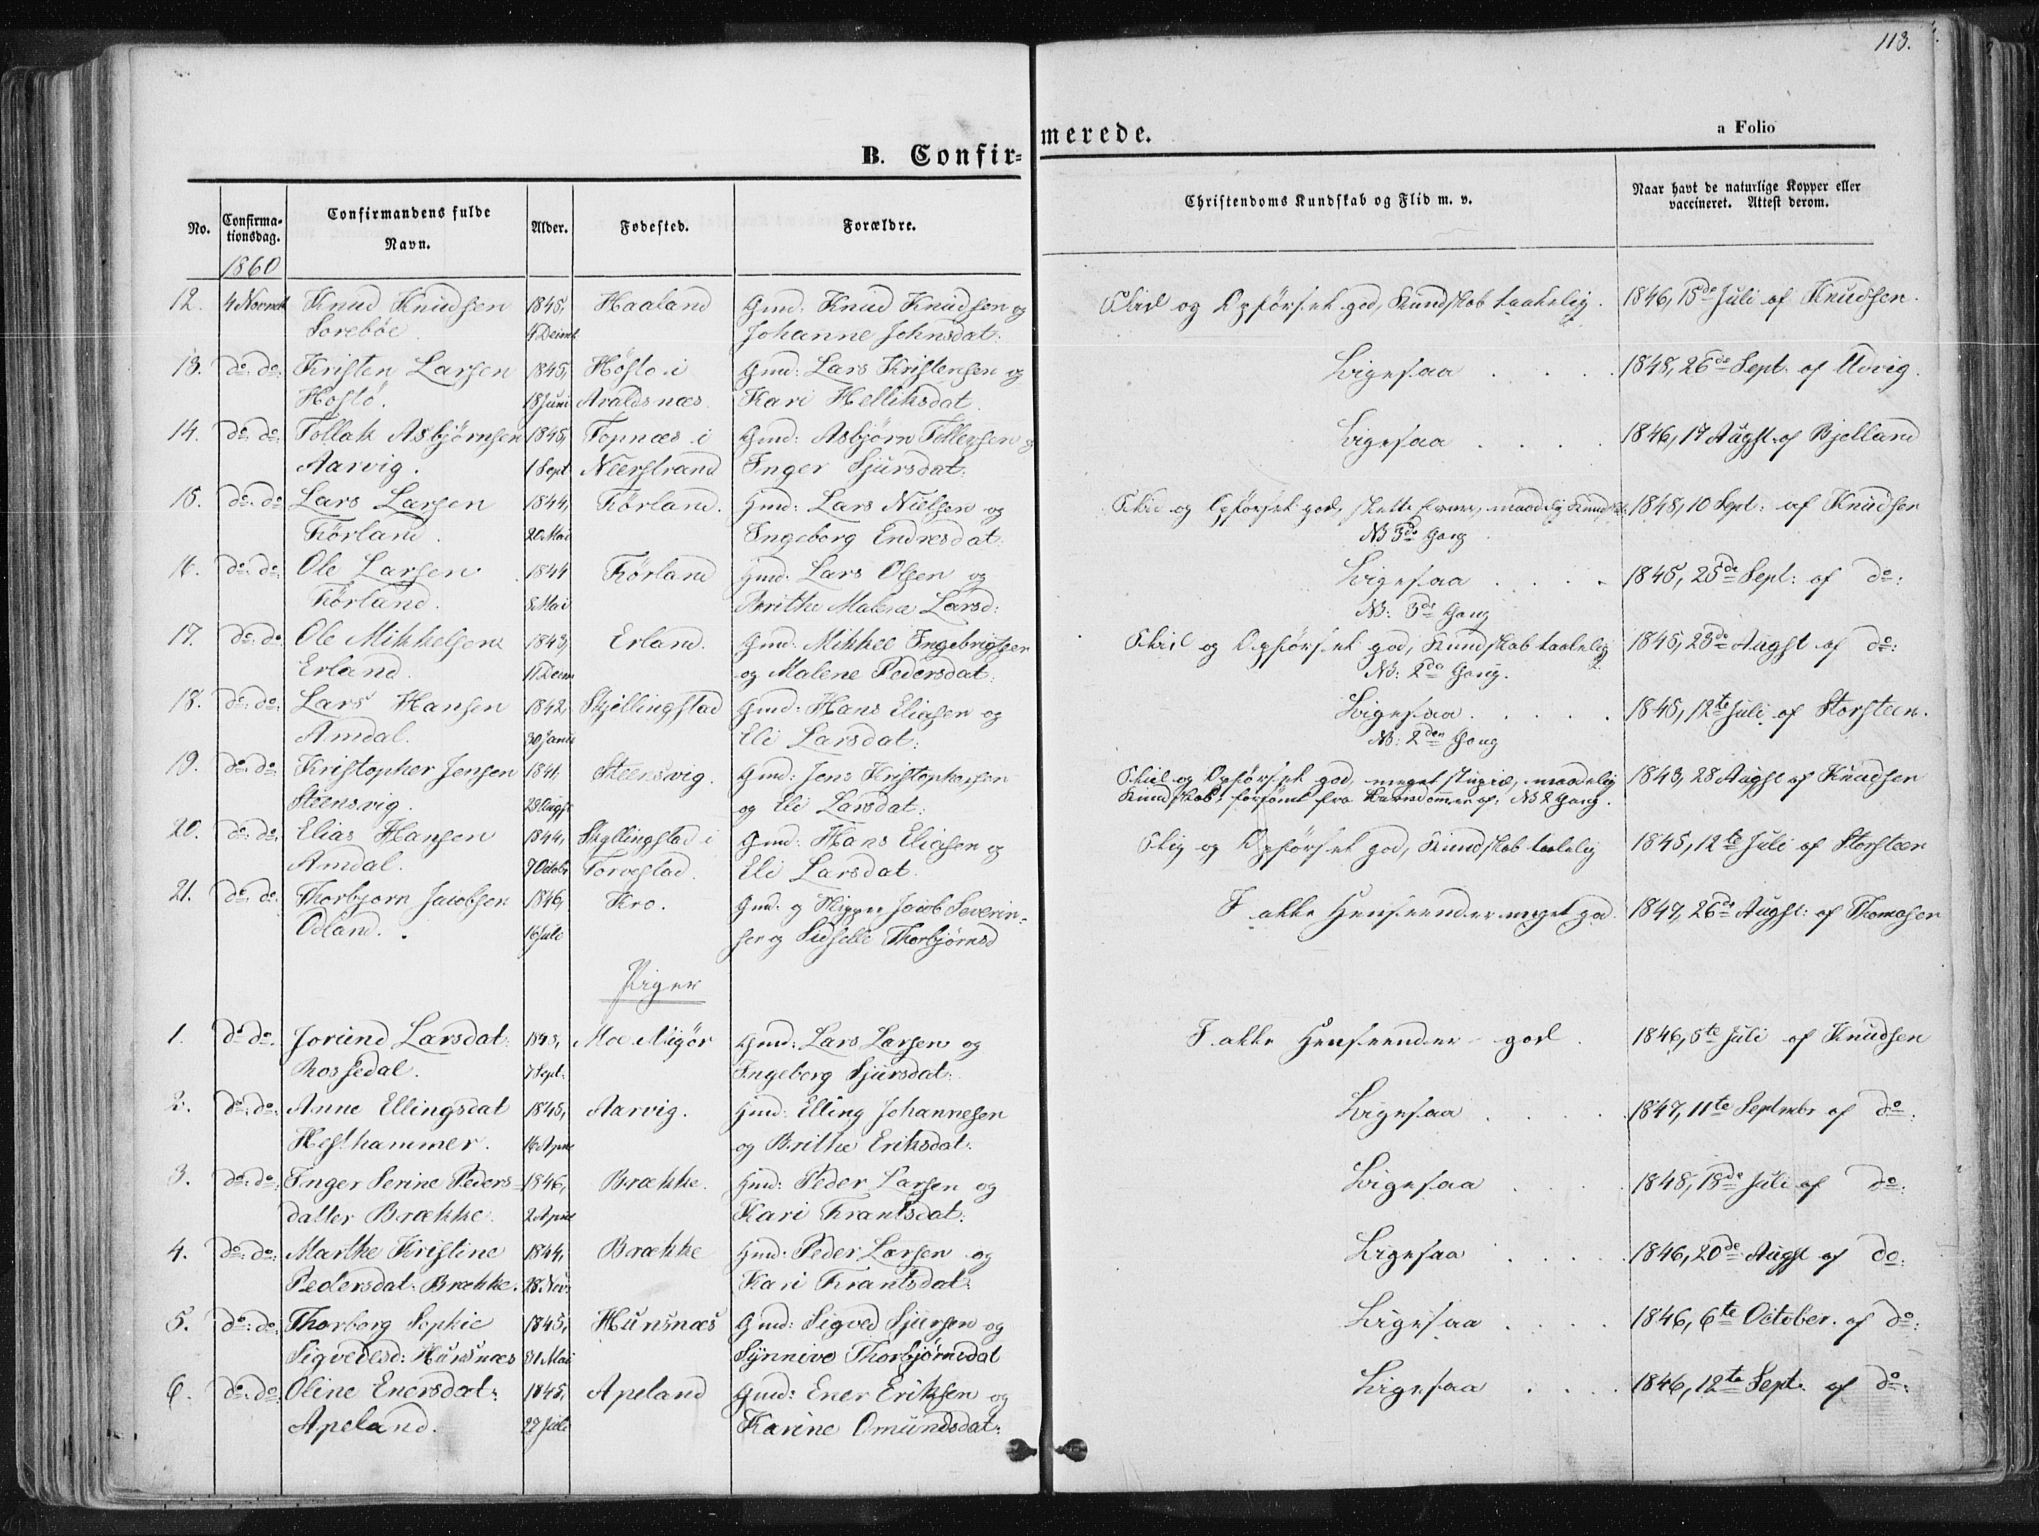 113.
B. Confir-
merede.
a Folio
No.
Confirma-
tionsdag.
Confirmandens fulde
Navn.
Alder.
Fødested.
Forældre.
Christendoms Kundskab og Flid m. v.
Naar havt de naturlige Kopper eller
vaccineret. Attest derom.
1860
12. 4 Novemb Knud Knudsen 1845, Haaland Gmd: Knud Knudsen og Flid og Opførsel god, Kundskab taalelig. 1846, 15de Juli af Knudsen.
Sorebøe. 4 Decemb Johanne Johnsdat:
13. do: do: Kristen Larsen 1845, Høstø i Gmd: Lars Kristensen og Ligesaa 1848, 26de Sept. af Udvig.
Høstø. 18 Juni Avaldsnæs. Kari Helliksdat.
14. do: do: Tollak Asbjørnsen 1845, Topnæs i Gmd: Asbjørn Tollevsen og Ligesaa 1846, 17 Augst. af Bjelland
Aarvig. 1 Sept Nærstrand Inger Sjursdat:
15. do: do: Lars Larsen 1844, Førland. Gmd: Lars Nielsen og Flid og Opførsel god, maadelig Kundsk. 1848, 10 Sept: af Knudsen
Førland. 20 Mai Ingeborg Endresdat: NB 3de Gang.
16. do: do: Ole Larsen 1844 Førland Gmd: Lars Olsen og Ligesaa 1845, 25de Sept: af do:
Førland. 8 Mai Brithe Malene Larsd: NB: 3de Gang
17. do: do: Ole Mikkelsen 1843, Erland. Gmd: Mikkel Ingebrigtsen Flid og Opførsel god, Kundskab taalelig 1845, 23de Augst af do:
Erland. 17 Decem og Malene Pedersdat: NB: 2de Gang.
18. do: do: Lars Hansen 1842, Skjellingstad Gmd: Hans Eliasen og Ligesaa. 1845, 12te Juli af Storsteen.
Amdal. 30 Janu Eli Larsdat: NB: 2den Gang
19. do: do: Kristopher Jensen 1841. Steensvig. Gmd: Jens Kristophersen Flid og Opførsel god, meget stupid, maadelig 1843, 28 Augst af Knudsen
Steensvig. 23 Augst og Eli Larsdat: Kundskab; forsømt fra Barndommen af: NB 2 Gang.
20. do: do: Elias Hansen 1844, Skyllingstad i Gmd: Hans Eliasen og Flig og Opførsel god, Kundskab taalelig 1845, 12te Juli af Storsteen
Amdal. 7 Octobr Torvestad. Eli Larsdat.
21. do: do: Thorbjørn Jacobsen 1846, Kro. Gmd: og Skipper Jacob Severin- I alle Henseender meget god. 1847, 26de Augst: af Thomasen
Odland. 16 Juli sen og Sidselle Thorbjørnsd
Piger
1. do do. Jorund Larsdat: 1845, Moe Gmd: Lars Larsen og I alle Henseender god. 1846, 5te Juli af Knudsen
Rossedal. 7 Sept: Ingeborg Sjursdat:
2. do: do: Anne Ellingsdat 1845, Aarvig. Gmd: Elling Johannesen Ligesaa 1847, 11te Septembr af do:
Hesthammer. 16 April og Brithe Eriksdat:
3. do: do: Inger Serine Peders- 1846, Brække. Gmd: Peder Larsen og Ligesaa 1848, 18de Juli af do:
datter Brække. 2 April Kari Frantsdat:
4. do: do: Marthe Kristine 1844, Brække Gmd: Peder Larsen og Ligesaa 1846, 20de Augst af do:
Pedersdat. Brække. 28 Nov: Kari Frantsdat:
5. do: do: Thorborg Sophie 1845, Hunsnæs Gmd: Sigved Sjursen og Ligesaa 1846, 6te October. af do:
Sigvedesd: Hunsnæs 31 Mai Synnive Thorbjørnsdat
6. do: do: Oline Enersdat: 1845, Apeland Gmd: Ener Eriksen og Ligesaa 1846, 12te Sept. af do:
Apeland. 27 Juli Karine Omundsdat: